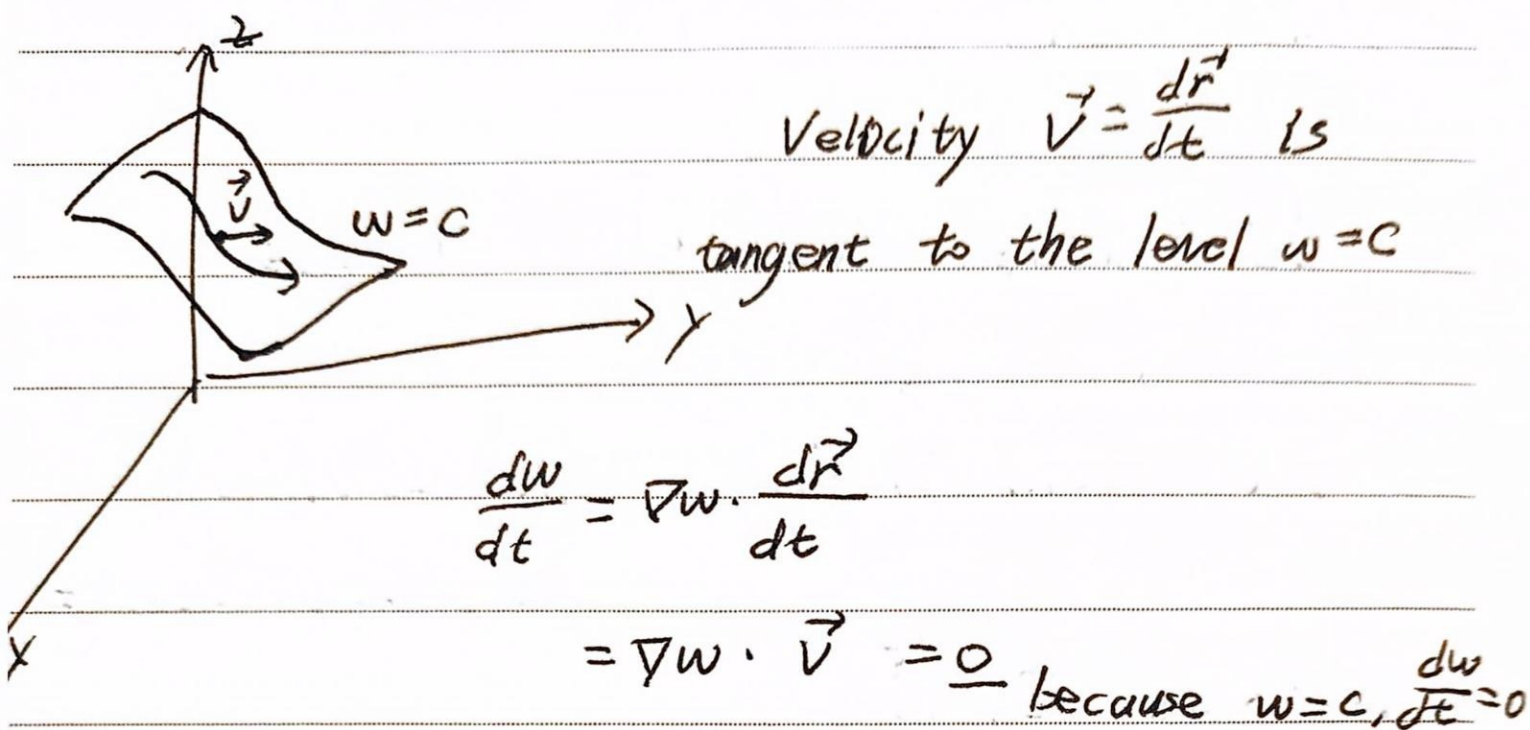 z
Velocity \vec{V} = \frac{d\vec{r}}{dt} is
\vec{v}
w = c
tangent to the level w = c
y
\frac{dw}{dt} = ∇w · \frac{d\vec{r}}{dt}
x
= ∇w · \vec{V} = 0 because w = c, \frac{dw}{dt} = 0